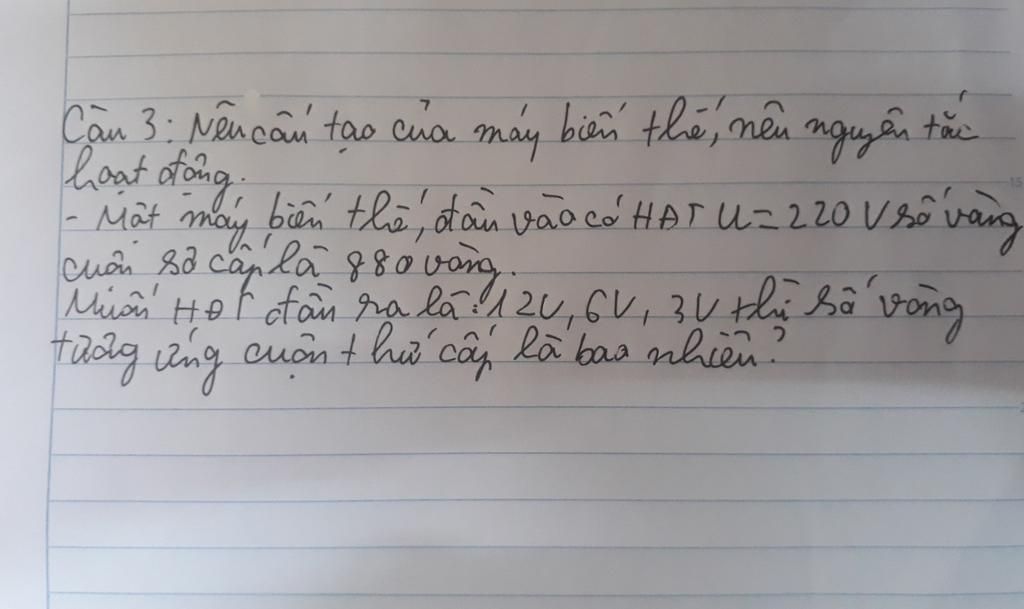 Câu 3: Nêu cấu tạo của máy biến thế, nêu nguyên tắc
hoạt động.
- Một máy biến thế, đầu vào có HĐT U = 220 V số vòng
cuộn sơ cấp là 880 vòng.
Muốn HĐT đầu ra là: 12V, 6V, 3V thì số vòng
tương ứng cuộn thứ cấp là bao nhiêu?
15